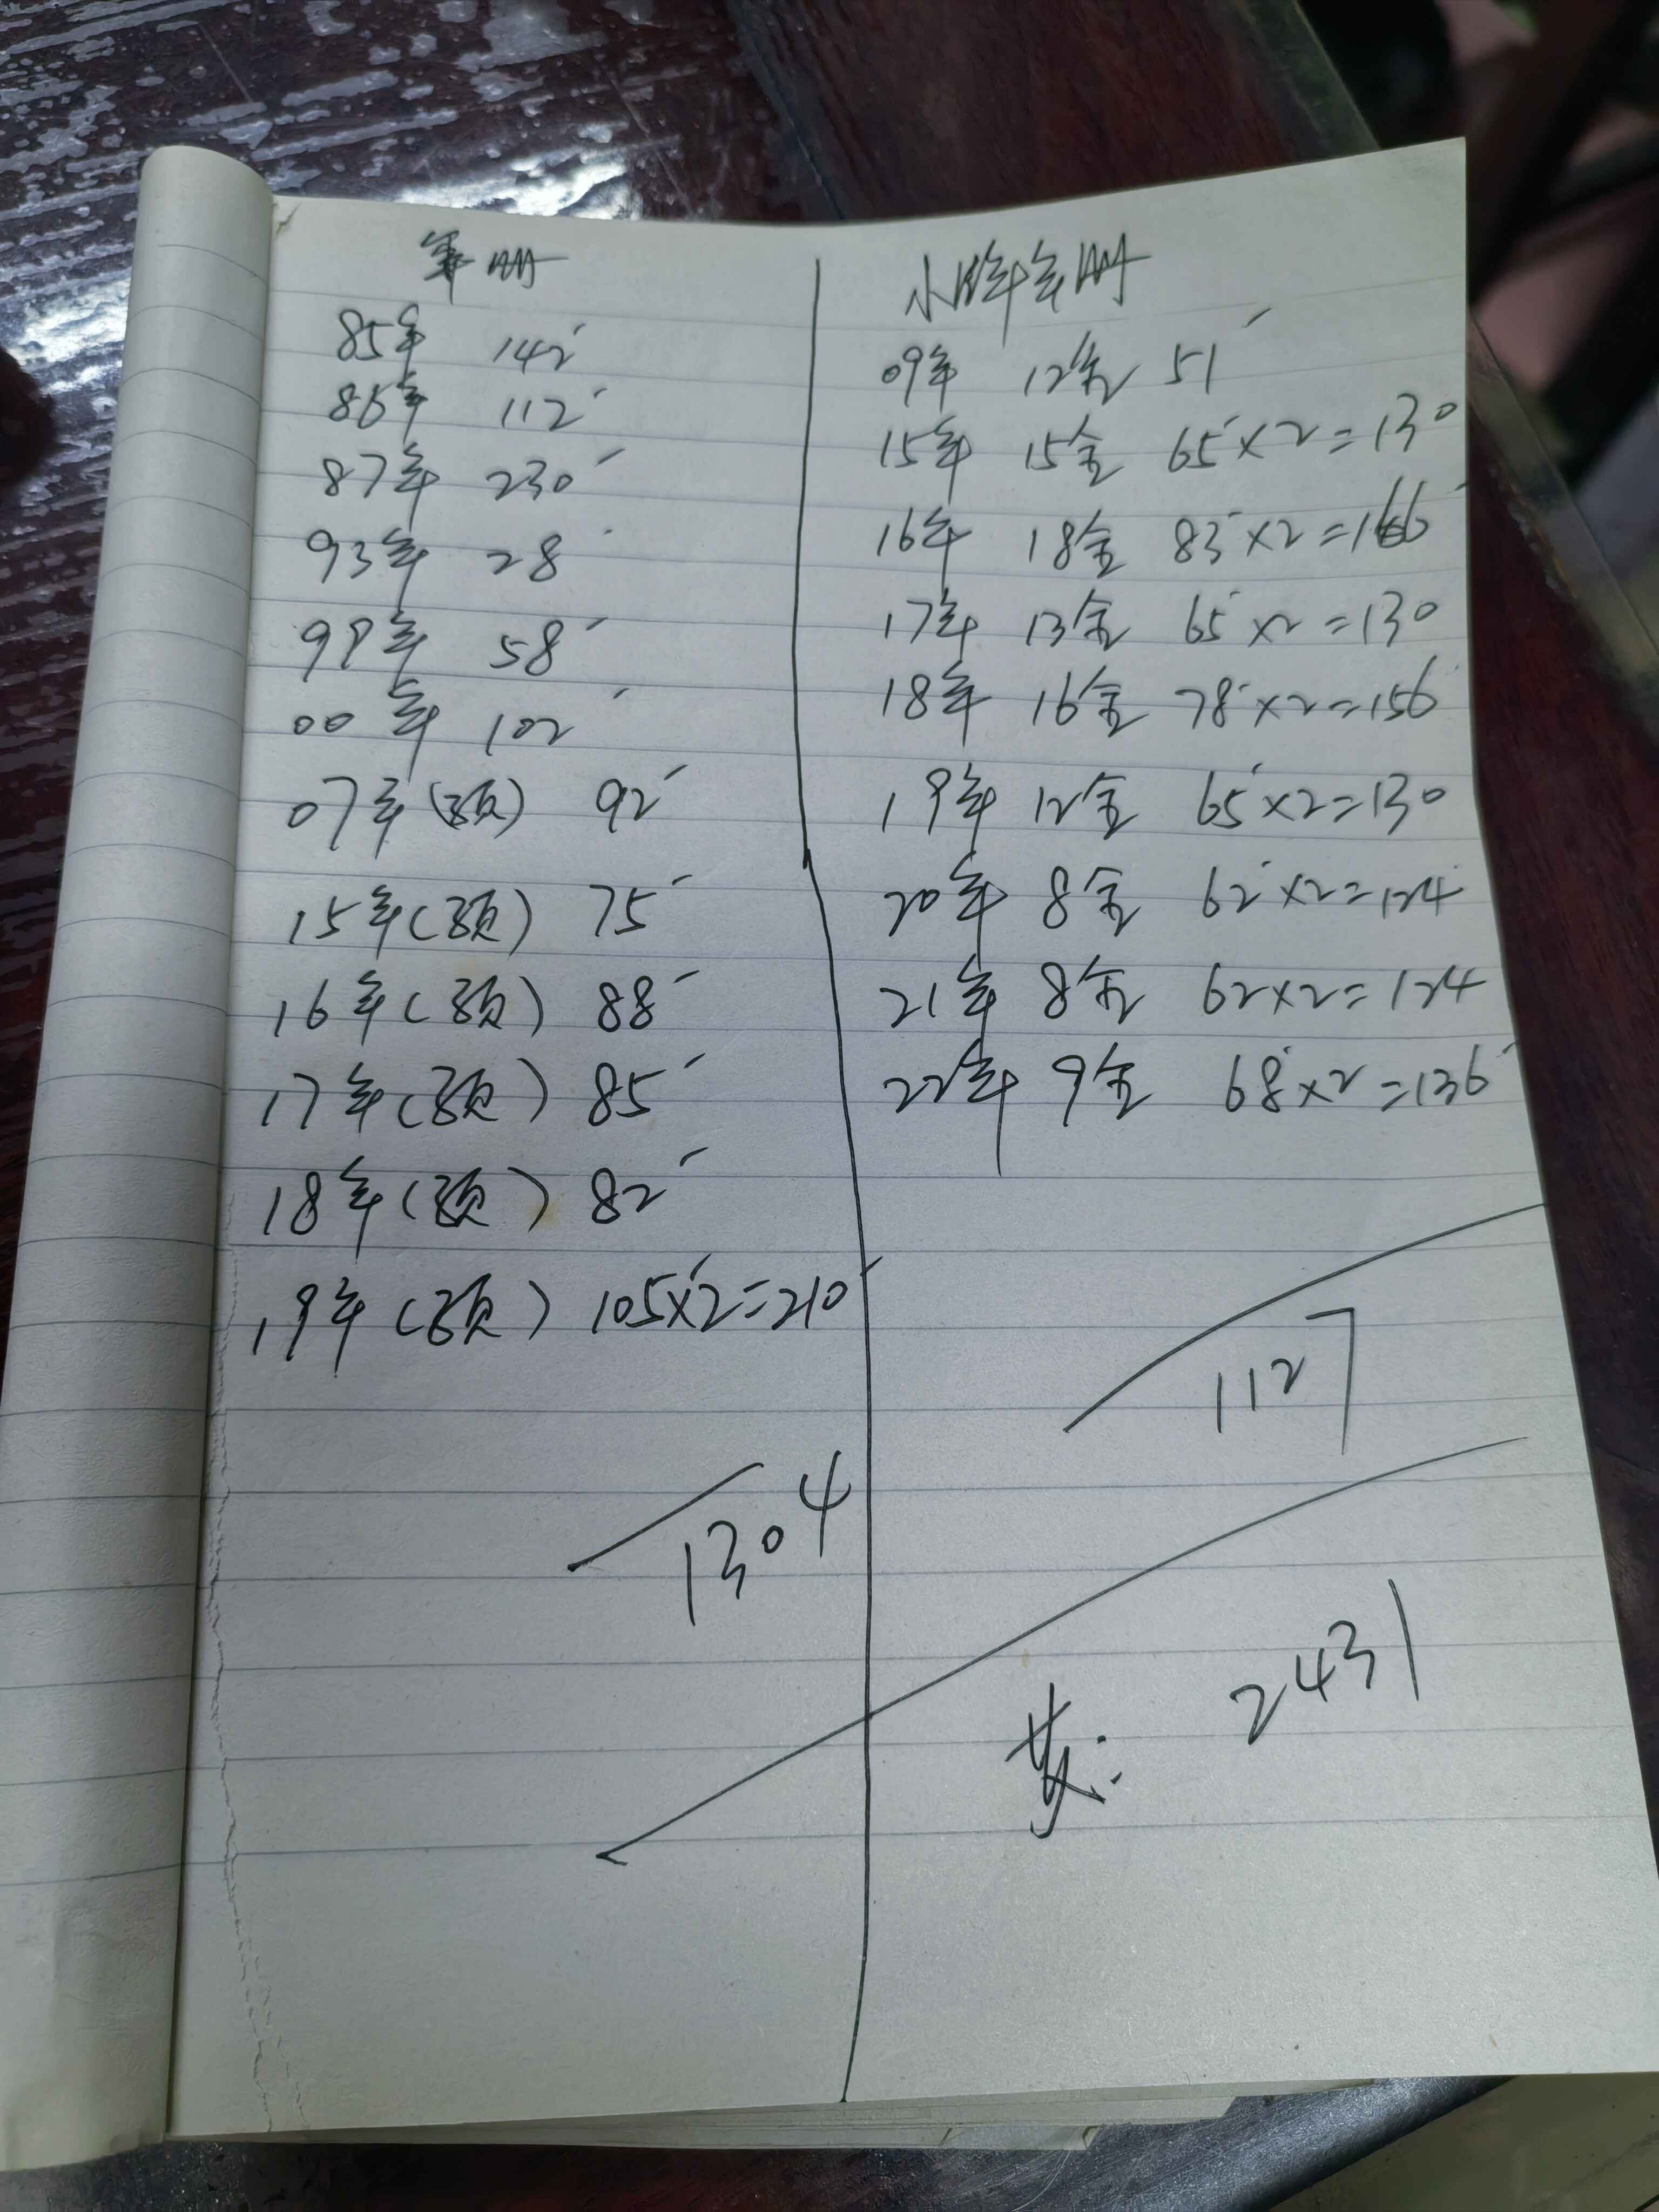 年册
85年 142
86年 112
87年 230
93年 28
99年 58
00年 102
07年(预) 92
15年(预) 75
16年(预) 88
17年(预) 85
18年(预) 82
19年(预) 105×2=210
1304
小胖年册
09年 12全 51
15年 15全 65×2=130
16年 18全 83×2=166
17年 13全 65×2=130
18年 16全 78×2=156
19年 12全 65×2=130
20年 8全 62×2=124
21年 8全 62×2=124
22年 9全 68×2=136
1127
共: 2431